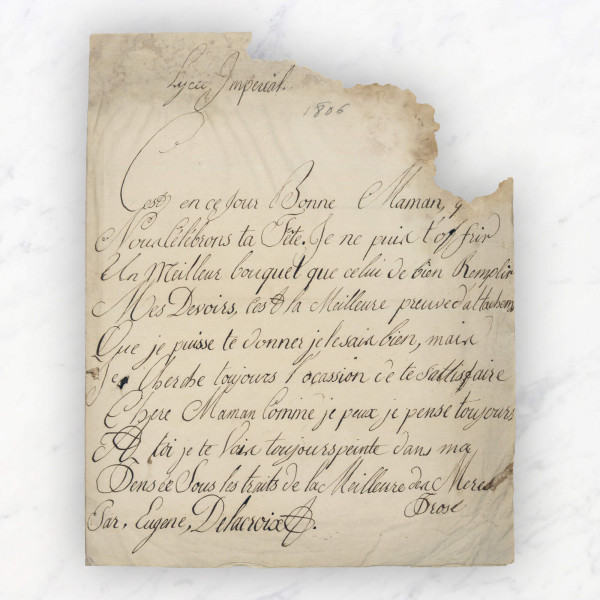 Lycée Imperial.
1806
Cest en ce Jour Bonne Maman, q
Nous Célébrons ta Fête. Je ne puix t'offrir
Un Meilleur bouquet que celui de bien Remplir
Mes Devoirs, cest la Meilleure preuve d'attachem
Que je puisse te donner je le saix bien, maix
Je Cherche toujours l'ocassion de te sattisfaire
Chere Maman Comme je peux je pense toujours
A toi je te Voix toujours peinte dans ma
Pensée Sous les traits de la Meilleure des Meres
Prose
Par, Eugene, Delacroix.